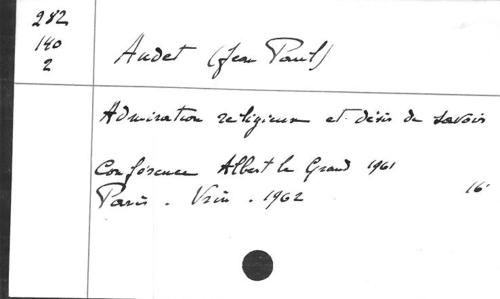 282
140
2
Audet (Jean Paul)
Admiration religieuse et désir de savoir
Conférence Albert le Grand 1961
Paris. Vrin. 1962
16'